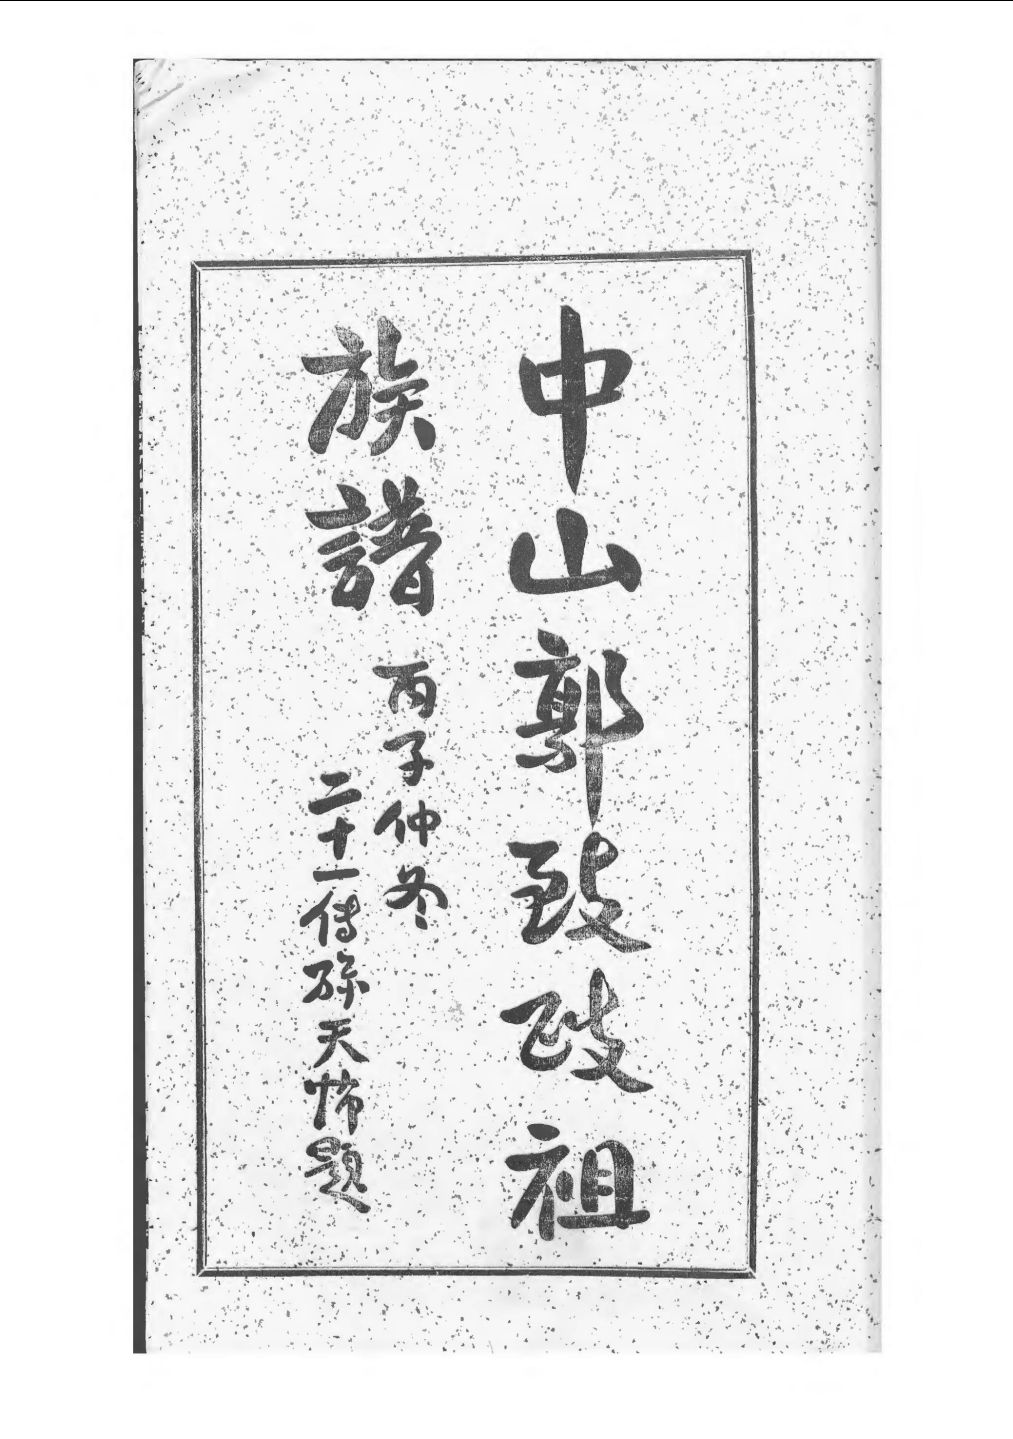 中山郭致政祖
族譜
丙子仲冬
二十一傳孫天題